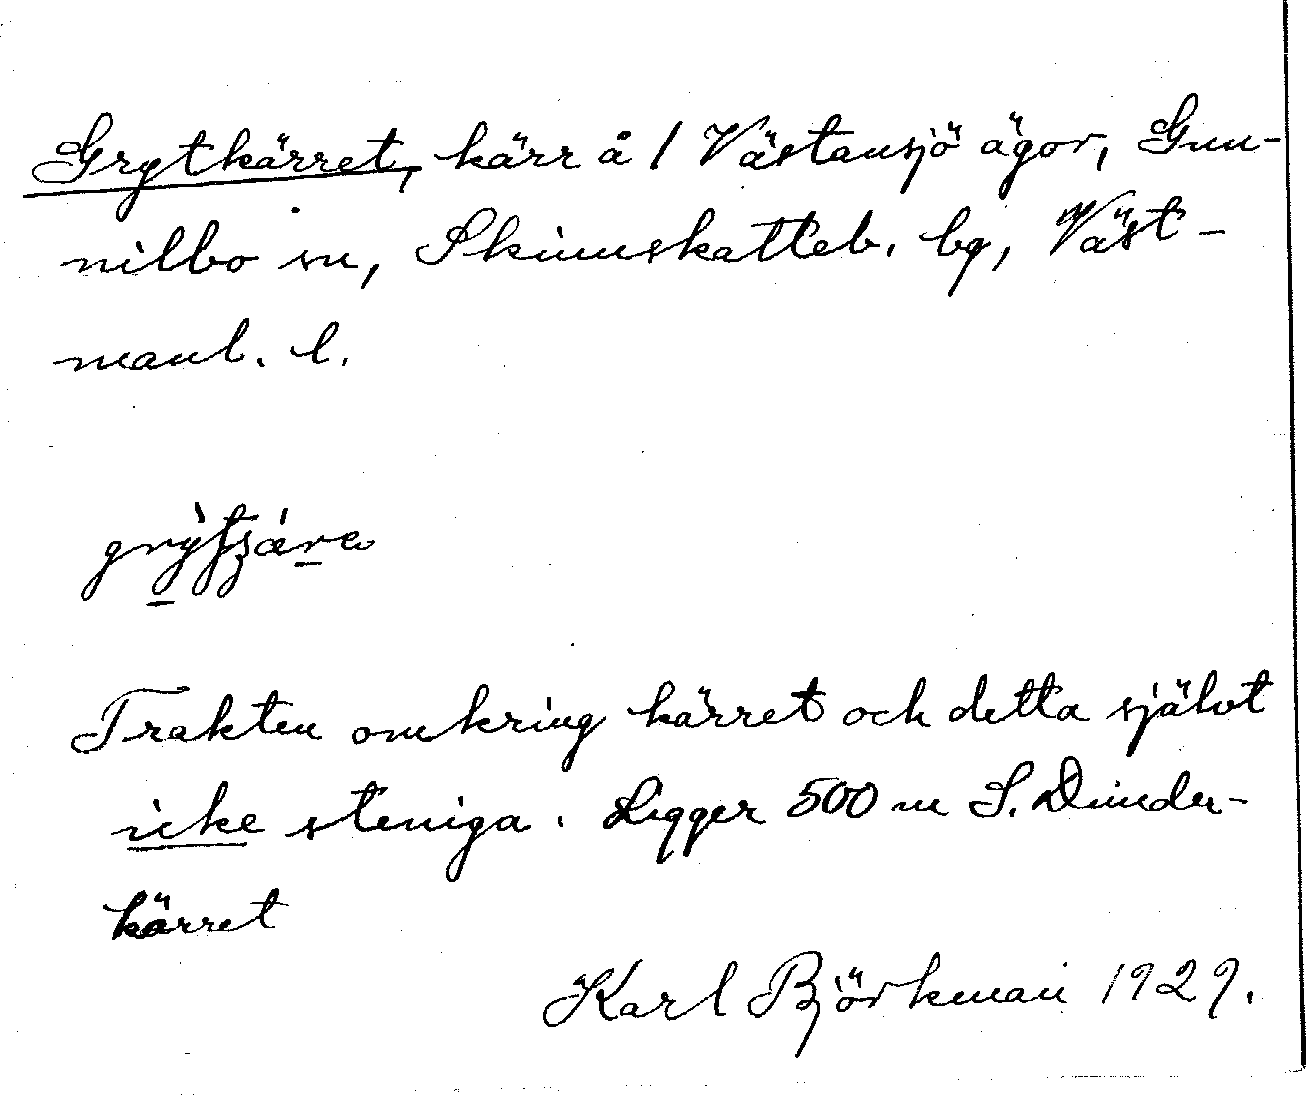 Grytkärret, kärr å / Västansjö ägor, Gun-
nilbo sn, Skinnskatteb. bg, Väst-
manl. l.
Trakten omkring kärret och detta självt
icke steniga. Ligger 500 m S. Dunder-
kärret
Karl Björkman 1929.